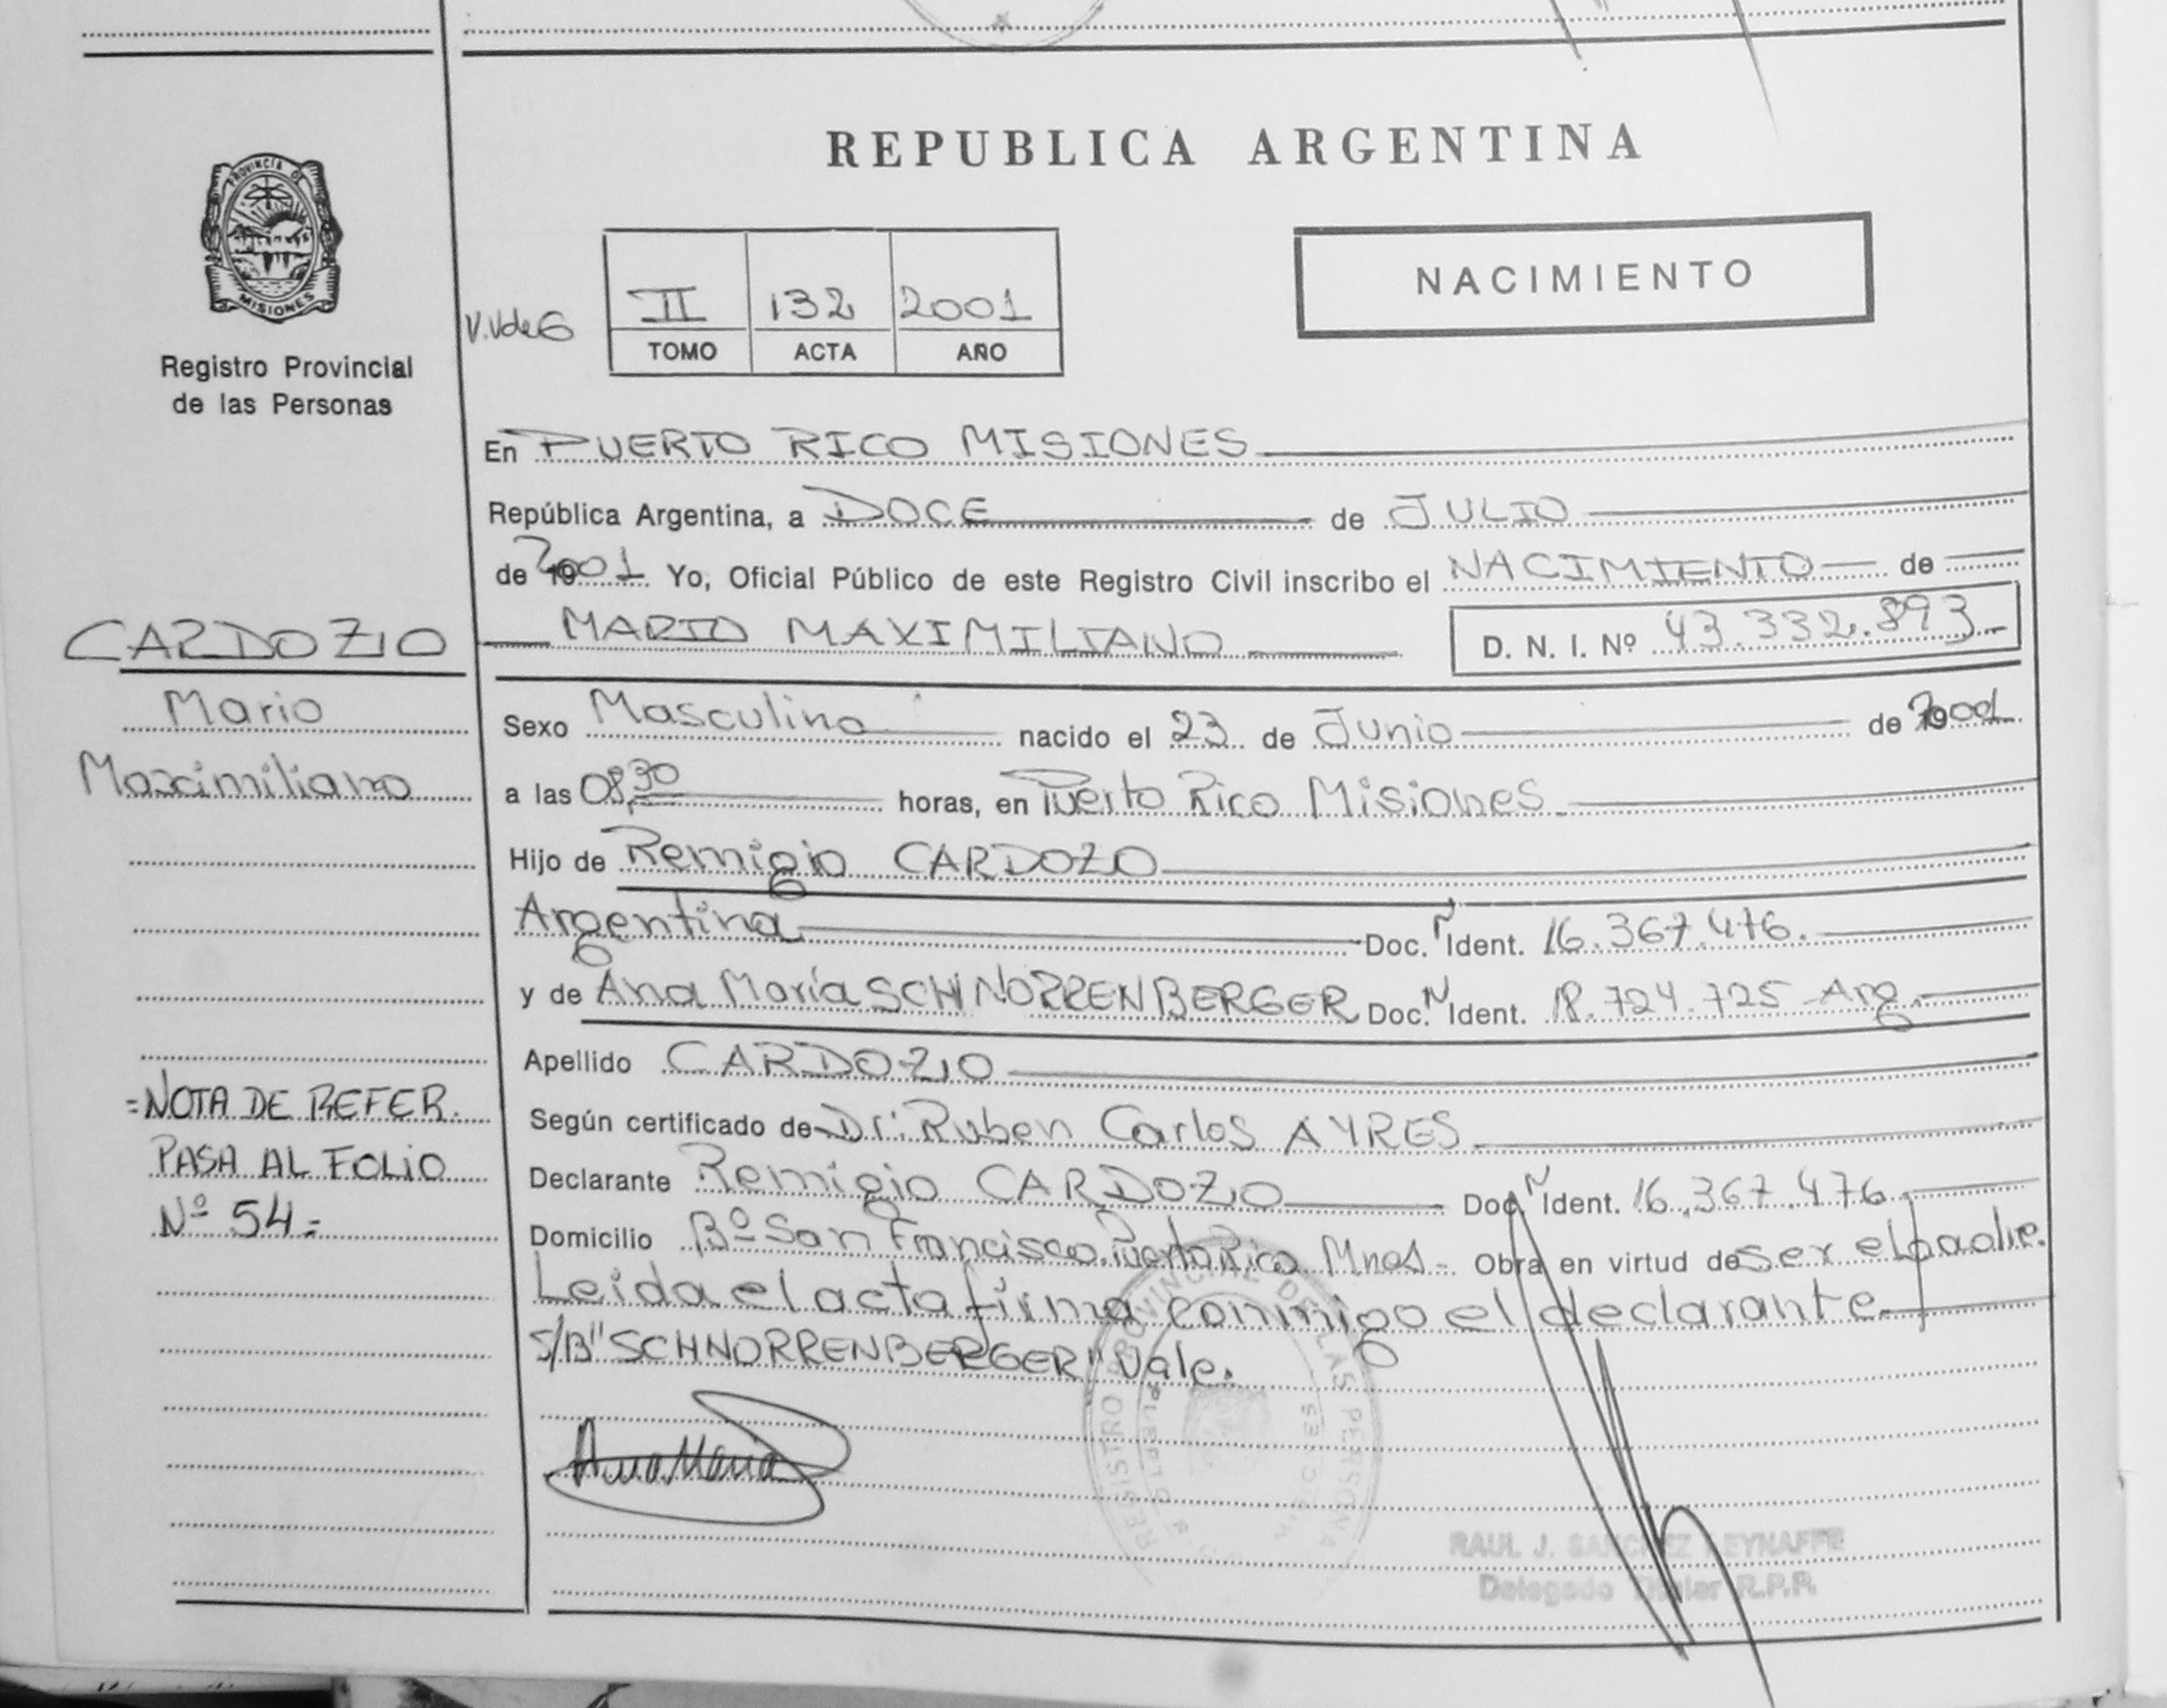 PROVINCIA DE
MISIONES
Registro Provincial
de las Personas
REPUBLICA ARGENTINA
NACIMIENTO
V.VdeG
II 132 2001
TOMO ACTA AÑO
En PUERTO RICO MISIONES
República Argentina, a DOCE de JULIO
de 2001 Yo, Oficial Público de este Registro Civil inscribo el NACIMIENTO de
MARIO MAXIMILIANO D. N. I. Nº 43.332.893
CARDOZO
Mario
Maximiliano
Sexo Masculino nacido el 23 de Junio de 2001
a las 08,30 horas, en Puerto Rico Misiones
Hijo de Remigio CARDOZO
Argentina Doc. N Ident. 16.367.476.
y de Ana María SCHNORRENBERGER Doc. N Ident. 18.724.725 Arg.
Apellido CARDOZO
Según certificado de Dr: Ruben Carlos AYRES
Declarante Remigio CARDOZO Doc. N Ident. 16.367.476
Domicilio Bº San Francisco. Puerto Rico Mnes - Obra en virtud de ser el padre.
Leida el acta firma conmigo el declarante.
S/B "SCHNORRENBERGER" Vale.
=NOTA DE REFER.
PASA AL FOLIO
Nº 54=
Ana Maria
REGISTRO PROVINCIAL DE LAS PERSONAS
PUERTO RICO MISIONES
RAUL J. SANCHEZ LEYNAFFE
Delegado Titular R.P.P.